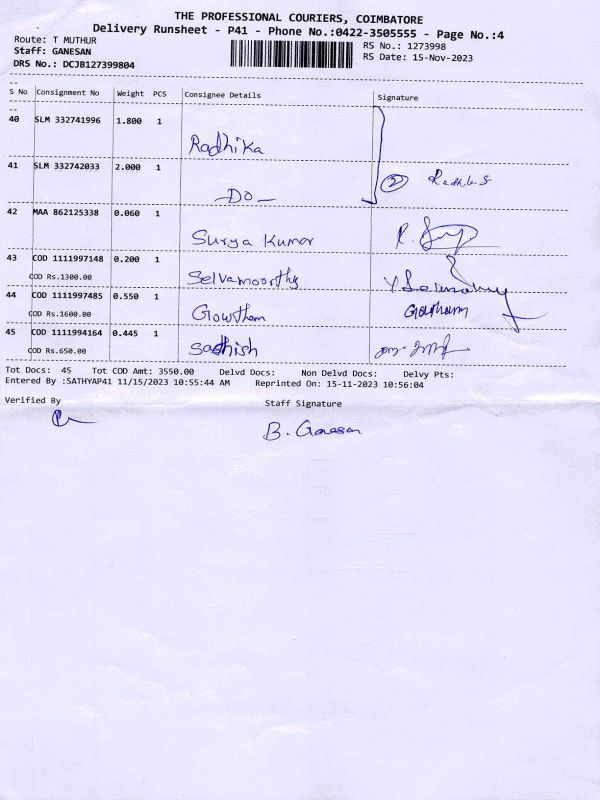 THE PROFESSIONAL COURIERS, COIMBATORE
Delivery Runsheet - P41 - Phone No.:0422-3505555 - Page No.:4
Route: T MUTHUR RS No.: 1273998
Staff: GANESAN RS Date: 15-Nov-2023
DRS No.: DCJB127399804
S No Consignment No Weight PCS Consignee Details Signature
40 SLM 332741996 1.800 1
Radhika
41 SLM 332742033 2.000 1
② Radhika S
- DO -
42 MAA 862125338 0.060 1
Surya Kumar
43 COD 1111997148 0.200 1
COD Rs.1300.00 Selvamoorthy
44 COD 1111997485 0.550 1
COD Rs.1600.00 Gowtham Gowtham
45 COD 1111994164 0.445 1
COD Rs.650.00 Sadhish
Tot Docs: 45 Tot COD Amt: 3550.00 Delvd Docs: Non Delvd Docs: Delvy Pts:
Entered By :SATHYAP41 11/15/2023 10:55:44 AM Reprinted On: 15-11-2023 10:56:04
Verified By Staff Signature
B. Ganesan